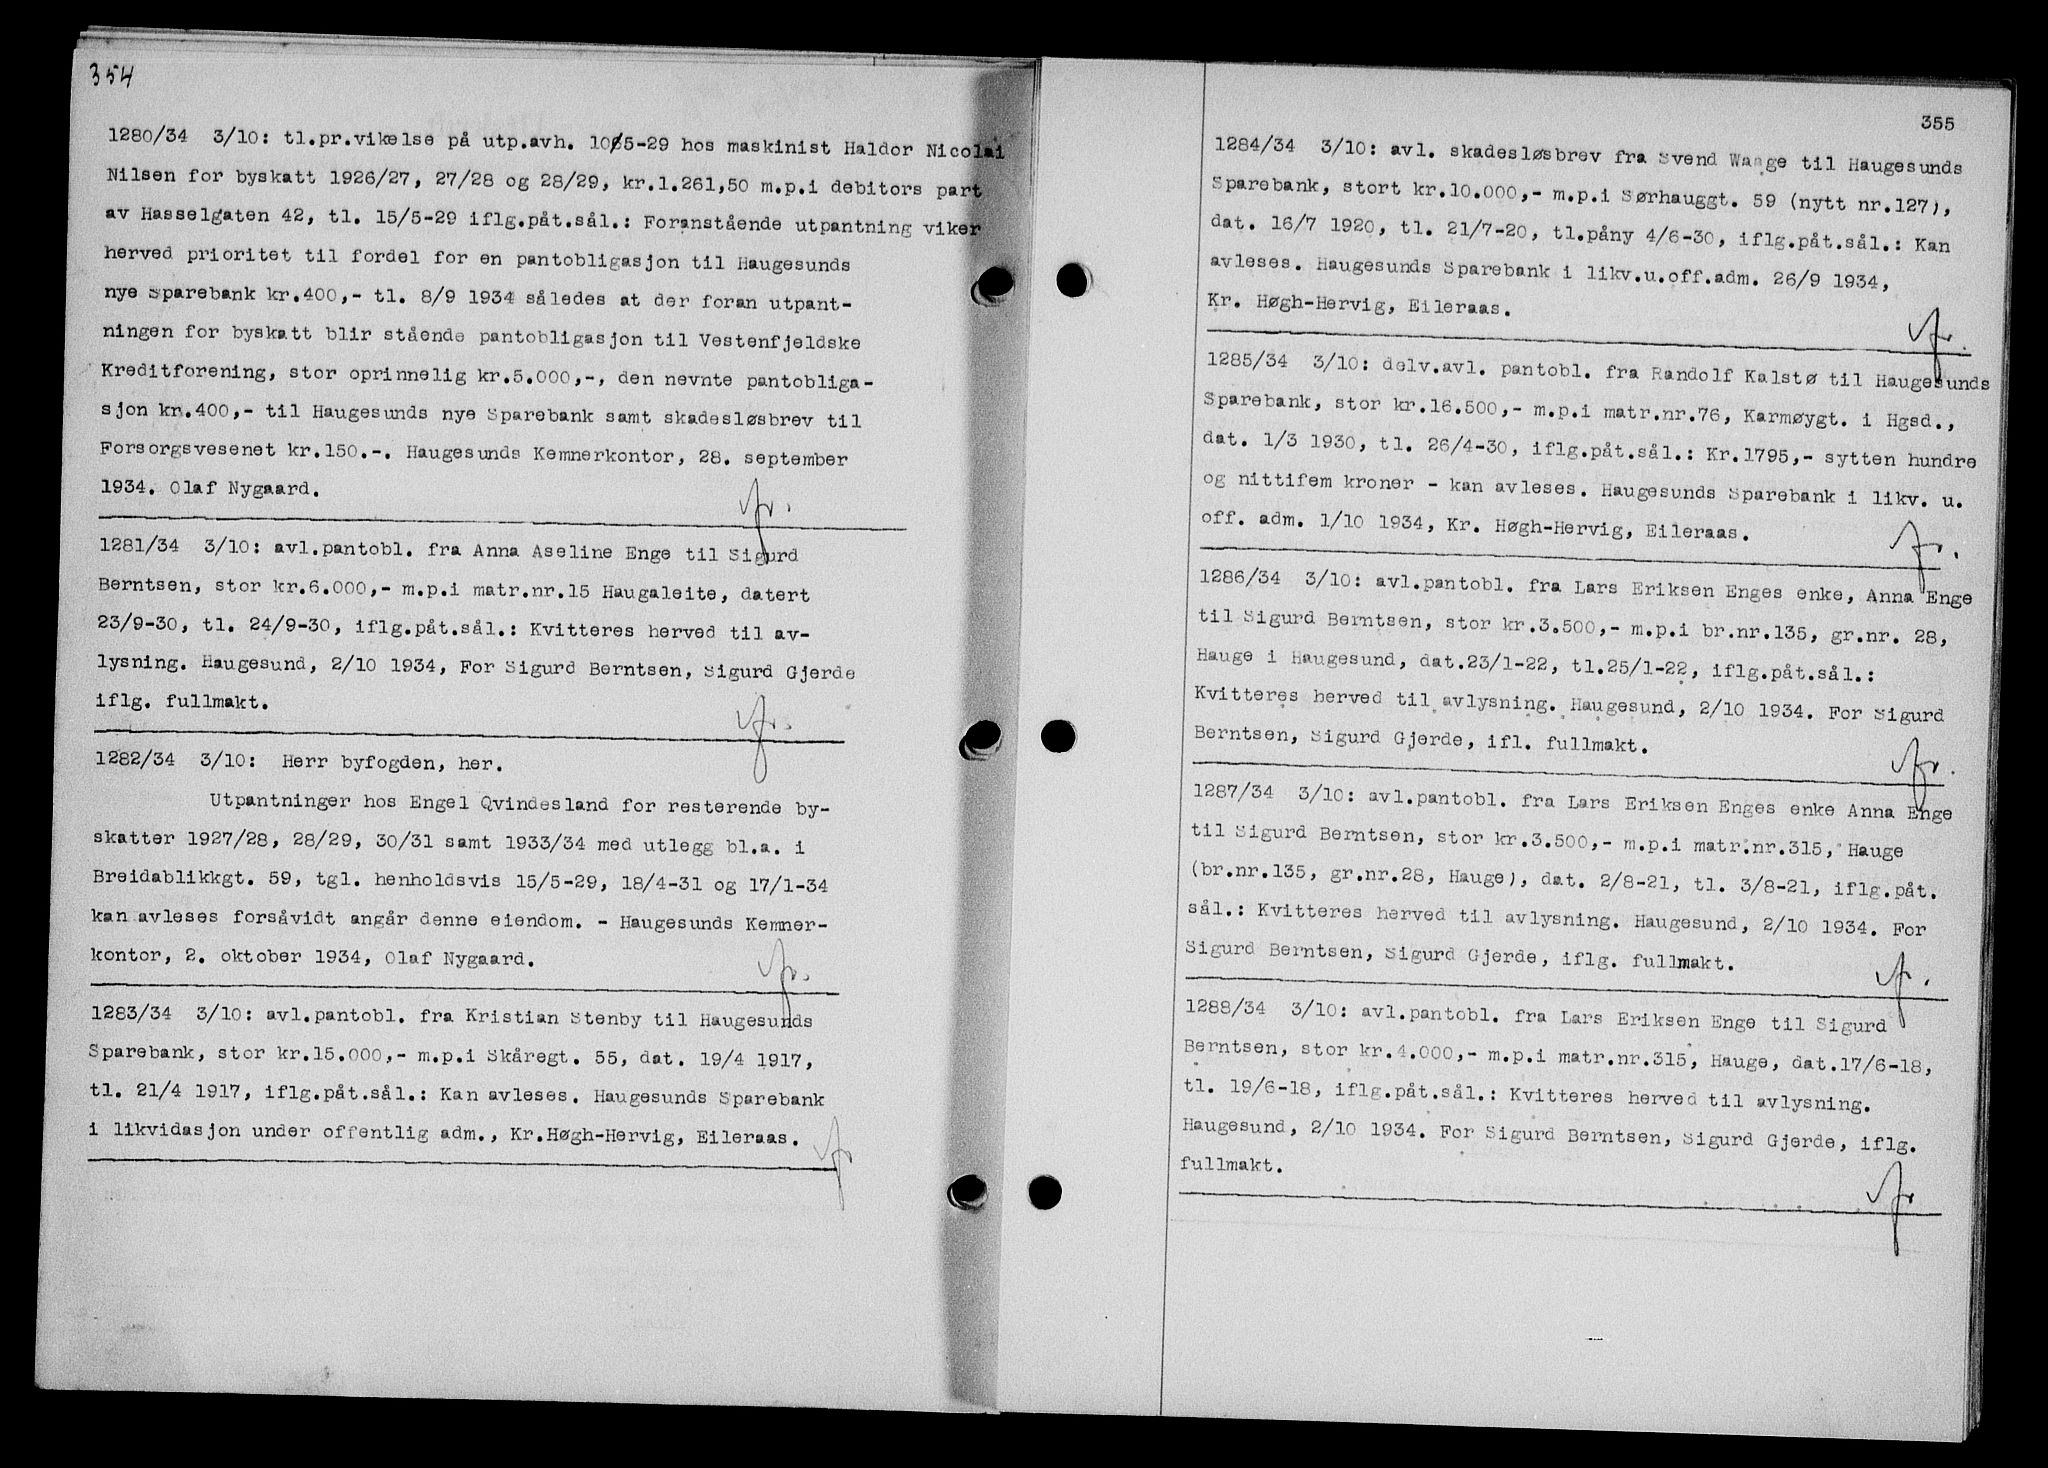 354
1280/34 3/10: tl.pr.vikelse på utp.avh. 10/5-29 hos maskinist Haldor Nicolai
Nilsen for byskatt 1926/27, 27/28 og 28/29, kr.1.261,50 m.p.i debitors part
av Hasselgaten 42, tl. 15/5-29 iflg.påt.sål.: Foranstående utpantning viker
herved prioritet til fordel for en pantobligasjon til Haugesunds
nye Sparebank kr.400,- tl. 8/9 1934 således at der foran utpant-
ningen for byskatt blir stående pantobligasjon til Vestenfjeldske
Kreditforening, stor oprinnelig kr.5.000,-, den nevnte pantobliga-
sjon kr.400,- til Haugesunds nye Sparebank samt skadesløsbrev til
Forsorgsvesenet kr.150.-. Haugesunds Kemnerkontor, 28. september
1934. Olaf Nygaard.
1281/34 3/10: avl.pantobl. fra Anna Aseline Enge til Sigurd
Berntsen, stor kr.6.000,- m.p.i matr.nr.15 Haugaleite, datert
23/9-30, tl. 24/9-30, iflg.påt.sål.: Kvitteres herved til av-
lysning. Haugesund, 2/10 1934, For Sigurd Berntsen, Sigurd Gjerde
iflg. fullmakt.
1282/34 3/10: Herr byfogden, her.
Utpantninger hos Engel Qvindesland for resterende by-
skatter 1927/28, 28/29, 30/31 samt 1933/34 med utlegg bl.a. i
Breidablikkgt. 59, tgl. henholdsvis 15/5-29, 18/4-31 og 17/1-34
kan avleses forsåvidt angår denne eiendom. - Haugesunds Kemner-
kontor, 2. oktober 1934, Olaf Nygaard.
1283/34 3/10: avl.pantobl. fra Kristian Stenby til Haugesunds
Sparebank, stor kr.15.000,- m.p.i Skåregt. 55, dat. 19/4 1917,
tl. 21/4 1917, iflg.påt.sål.: Kan avleses. Haugesunds Sparebank
i likvidasjon under offentlig adm., Kr.Høgh-Hervig, Eileraas.
355
1284/34 3/10: avl. skadesløsbrev fra Svend Waage til Haugesunds
Sparebank, stort kr.10.000,- m.p.i Sørhauggt. 59 (nytt nr.127),
dat. 16/7 1920, tl. 21/7-20, tl.påny 4/6-30, iflg.påt.sål.: Kan
avleses. Haugesunds Sparebank i likv.u.off.adm. 26/9 1934,
Kr. Høgh-Hervig, Eileraas.
1285/34 3/10: delv.avl. pantobl. fra Randolf Kalstø til Haugesunds
Sparebank, stor kr.16.500,- m.p.i matr.nr.76, Karmøygt. i Hgsd.,
dat. 1/3 1930, tl. 26/4-30, iflg.påt.sål.: Kr.1795,- sytten hundre
og nittifem kroner - kan avleses. Haugesunds Sparebank i likv. u.
off. adm. 1/10 1934, Kr. Høgh-Hervig, Eileraas.
1286/34 3/10: avl.pantobl. fra Lars Eriksen Enges enke, Anna Enge
til Sigurd Berntsen, stor kr.3.500,- m.p.i br.nr.135, gr.nr. 28,
Hauge i Haugesund, dat.23/1-22, tl.25/1-22, iflg.påt.sål.:
Kvitteres herved til avlysning. Haugesund, 2/10 1934. For Sigurd
Berntsen, Sigurd Gjerde, ifl. fullmakt.
1287/34 3/10: avl.pantobl. fra Lars Eriksen Enges enke Anna Enge
til Sigurd Berntsen, stor kr.3.500,- m.p.i matr.nr.315, Hauge
(br.nr.135, gr.nr.28, Hauge), dat. 2/8-21, tl. 3/8-21, iflg.påt.
sål.: Kvitteres herved til avlysning. Haugesund, 2/10 1934. For
Sigurd Berntsen, Sigurd Gjerde, iflg. fullmakt.
1288/34 3/10: avl.pantobl. fra Lars Eriksen Enge til Sigurd
Berntsen, stor kr.4.000,- m.p.i matr.nr.315, Hauge, dat.17/6-18,
tl. 19/6-18, iflg.påt.sål.: Kvitteres herved til avlysning.
Haugesund, 2/10 1934. For Sigurd Berntsen, Sigurd Gjerde, iflg.
fullmakt.